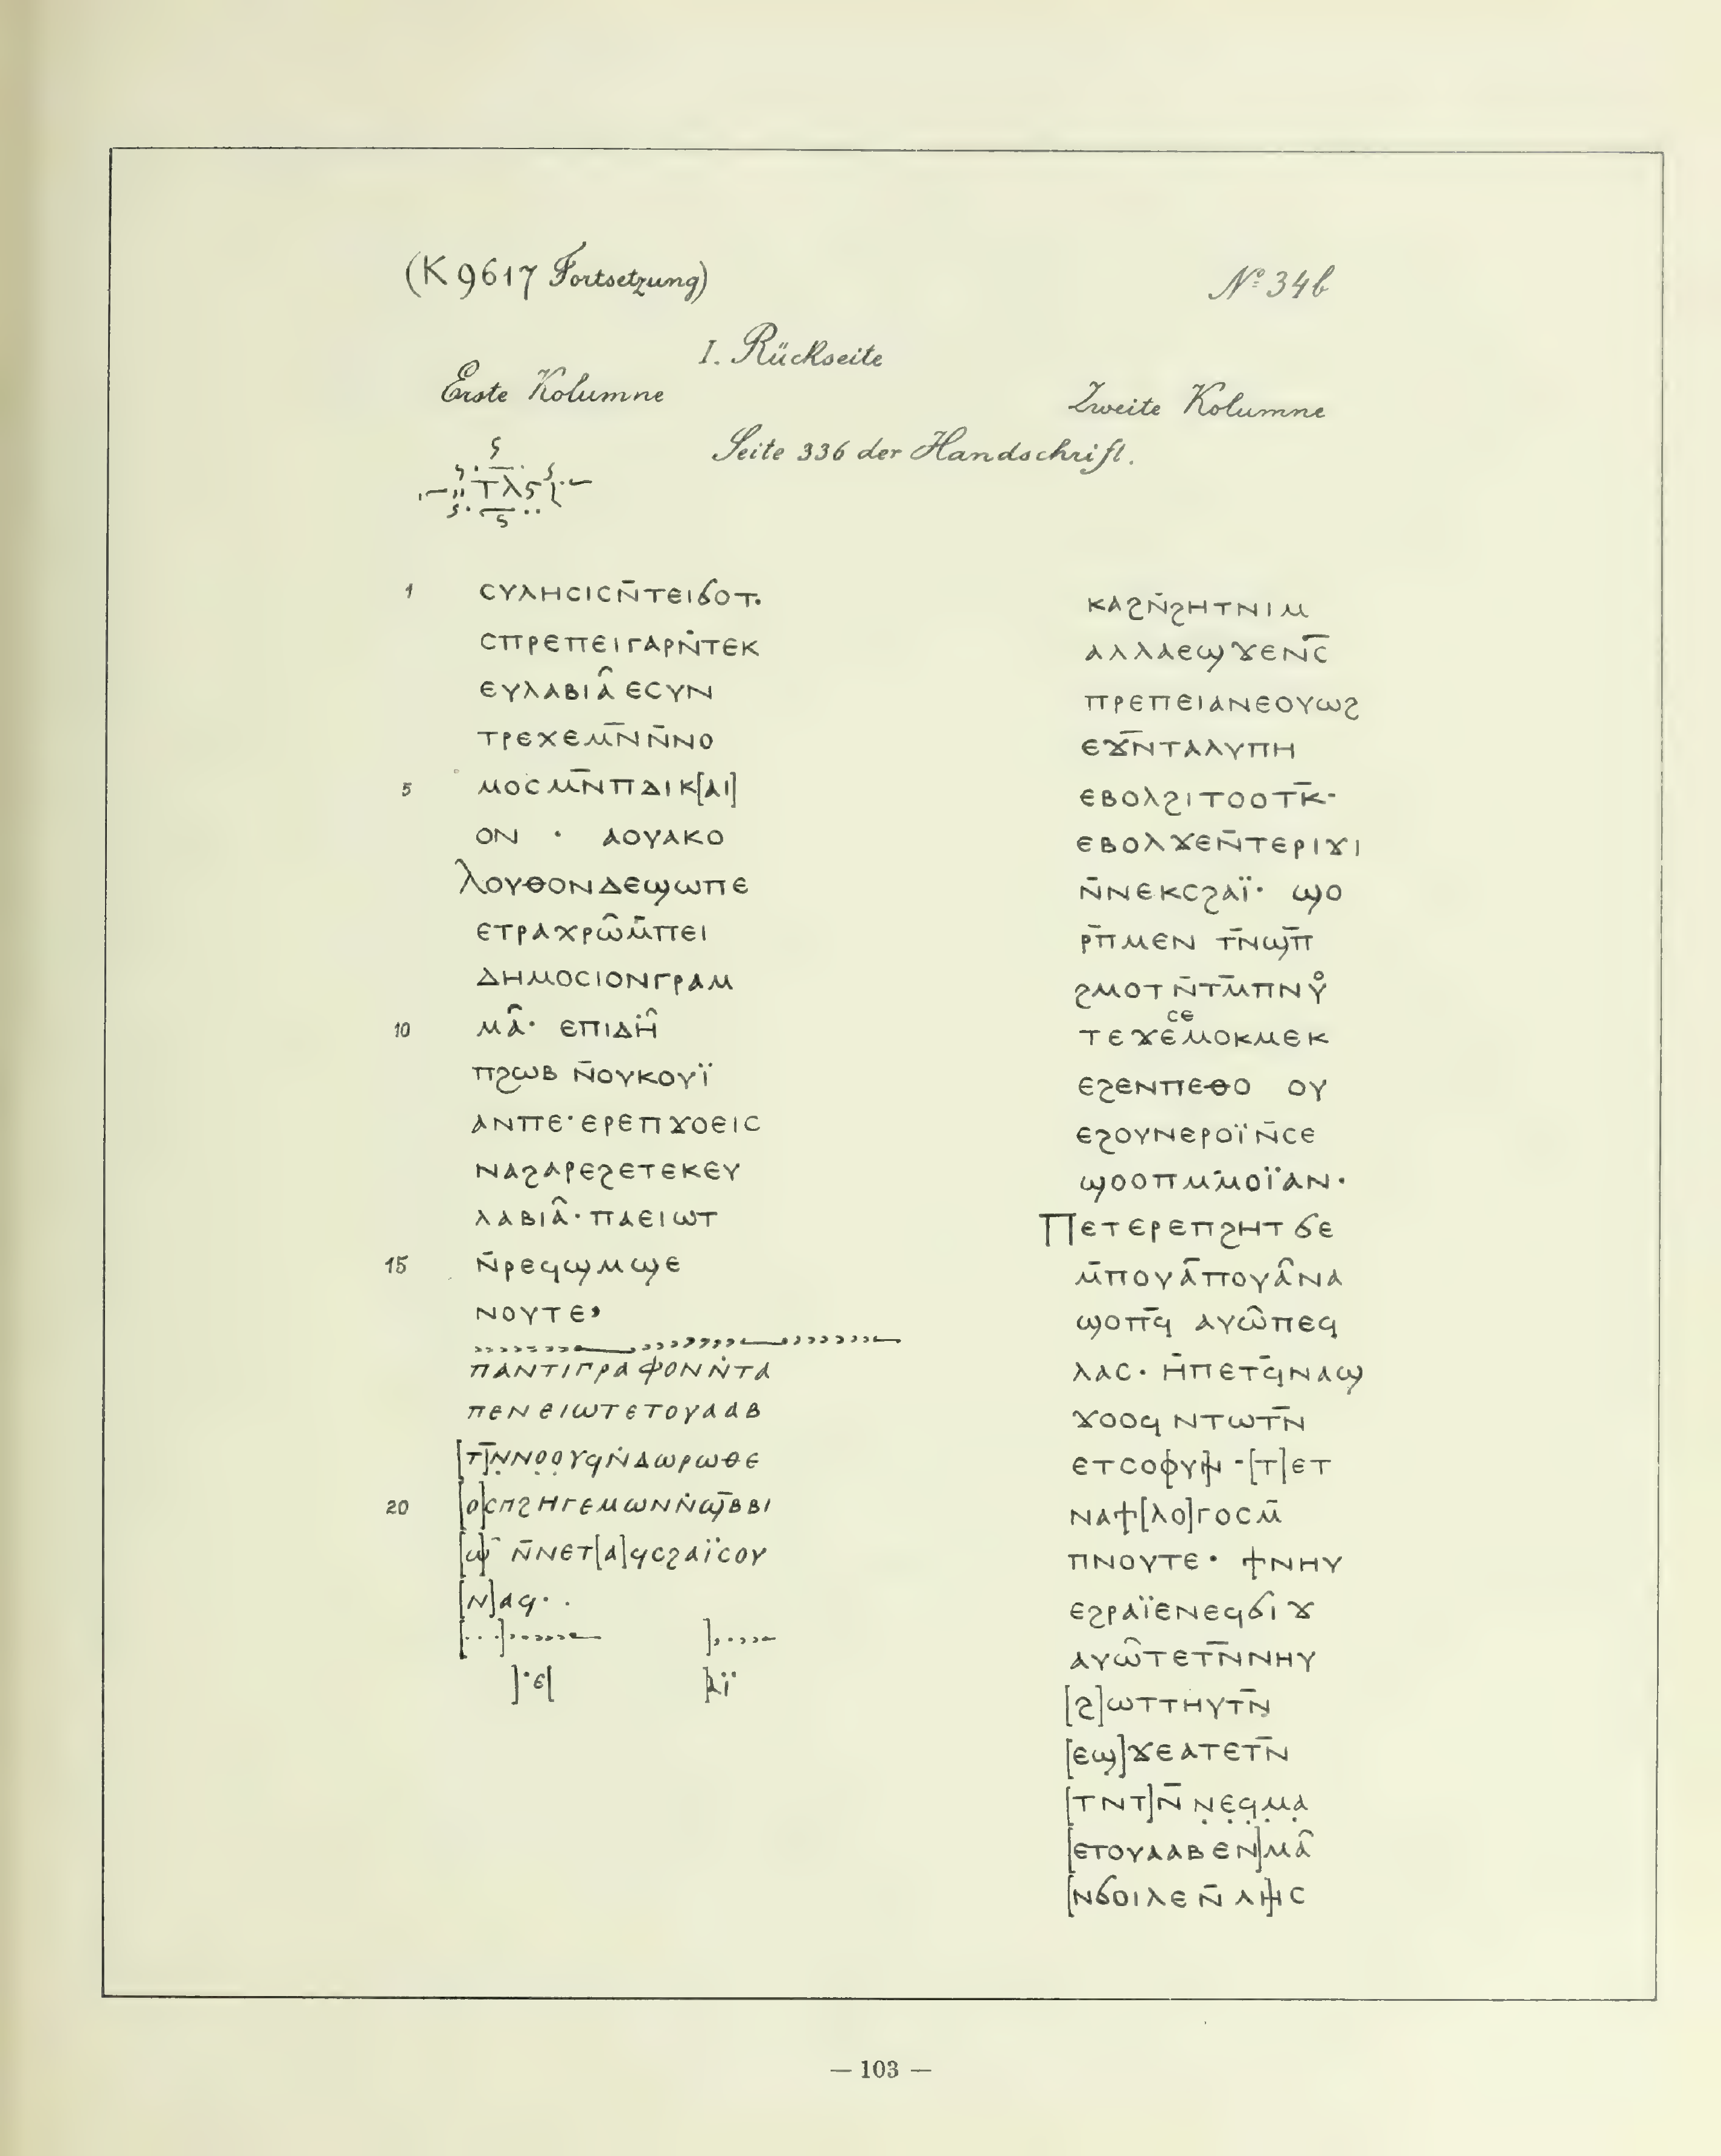 (K 9617 Fortsetzung)
Nº 34b
I. Rückseite
Erste Kolumne
Zweite Kolumne
Seite 336 der Handschrift.
ⲧⲗⲋ
1 ⲥⲩⲗⲏⲥⲓⲥⲛ̄ⲧⲉⲓϭⲟⲧ.
ⲥⲡⲣⲉⲡⲉⲓⲅⲁⲣⲛ̇ⲧⲉⲕ
ⲉⲩⲗⲁⲃⲓⲁ̂ ⲉⲥⲩⲛ
ⲧⲣⲉⲭⲉⲙ̄ⲛ̄ⲛ̄ⲛⲟ
5 ⲙⲟⲥⲙ̄ⲛ̄ⲡⲇⲓⲕ[ⲁⲓ]
ⲟⲛ · ⲁⲟⲩⲁⲕⲟ
ⲗⲟⲩⲑⲟⲛⲇⲉϣⲱⲡⲉ
ⲉⲧⲣⲁⲭⲣⲱ̂ⲙ̄ⲡⲉⲓ
ⲇⲏⲙⲟⲥⲓⲟⲛⲅⲣⲁⲙ
10 ⲙⲁ̂· ⲉⲡⲓⲇⲏ̂
ⲡϩⲱⲃ ⲛ̄ⲟⲩⲕⲟⲩⲓ̈
ⲁⲛⲡⲉ·ⲉⲣⲉⲡϫⲟⲉⲓⲥ
ⲛⲁϩⲁⲣⲉϩⲉⲧⲉⲕⲉⲩ
ⲗⲁⲃⲓⲁ̂·ⲡⲁⲉⲓⲱⲧ
15 ⲛ̄ⲣⲉϥϣⲙϣⲉ
ⲛⲟⲩⲧⲉ›
ⲡⲁⲛⲧⲓⲅⲣⲁⲫⲟⲛⲛ̇ⲧⲁ
ⲡⲉⲛⲉⲓⲱⲧⲉⲧⲟⲩⲁⲁⲃ
[ⲧ]ⲛ̣̄ⲛⲟ̣ⲟ̣ⲩϥⲛ̇ⲇⲱⲣⲱⲑⲉ
20 [ⲟ]ⲥⲡϩⲏⲅⲉⲙⲱⲛⲛ̇ϣ̄ⲃⲃⲓ
[ⲱ] ⲛ̄ⲛⲉⲧ[ⲁ]ϥⲥϩⲁⲓ̈ⲥⲟⲩ
[ⲛ]ⲁϥ· .
[...]
]·ⲉ[ ]ⲁⲓ̈
ⲕⲁϩⲛ̄ϩⲏⲧⲛⲓⲙ
ⲁⲗⲗⲁⲉϣϫⲉⲛⲥ̄
ⲡⲣⲉⲡⲉⲓⲁⲛⲉⲟⲩⲱϩ
ⲉϫ̄ⲛ̄ⲧⲁⲗⲩⲡⲏ
ⲉⲃⲟⲗϩⲓⲧⲟⲟⲧⲕ̄·
ⲉⲃⲟⲗϫⲉⲛ̄ⲧⲉⲣⲓϫⲓ
ⲛ̄ⲛⲉⲕⲥϩⲁⲓ̈· ϣⲟ
ⲣ̄ⲡ̄ⲙⲉⲛ ⲧ̄ⲛϣ̄ⲡ̄
ϩⲙⲟⲧ ⲛ̄ⲧⲙ̄ⲡⲛⲟⲩ
ⲥⲉ
ⲧⲉϫⲉⲙⲟⲕⲙⲉⲕ
ⲉϩⲉⲛⲡⲉⲑⲟ ⲟⲩ
ⲉϩⲟⲩⲛⲉⲣⲟⲓ̈ ⲛ̄ⲥⲉ
ϣⲟⲟⲡⲙ̄ⲙⲟⲓ̈ⲁⲛ·
ⲡⲉⲧⲉⲣⲉⲡϩⲏⲧ ϭⲉ
ⲙ̄ⲡⲟⲩⲁ̂ⲡⲟⲩⲁ̂ⲛⲁ
ϣⲟⲡϥ̄ ⲁⲩⲱ̂ⲡⲉϥ
ⲗⲁⲥ· ⲏ̄ⲡⲉⲧϥ̄ⲛⲁϣ
ϫⲟⲟϥ ⲛⲧⲱⲧ̄ⲛ
ⲉⲧⲥⲟⲫⲩ[ⲛ] -[ⲧ]ⲉⲧ
ⲛⲁϯ[ⲗⲟ]ⲅⲟⲥⲙ̄
ⲡⲛⲟⲩⲧⲉ· ϯⲛⲏⲩ
ⲉϩⲣⲁⲓ̈ⲉⲛⲉϥϭⲓϫ
ⲁⲩⲱ̂ⲧⲉⲧ̄ⲛ̄ⲛⲏⲩ
[ϩ]ⲱⲧⲧⲏⲩⲧ̄ⲛ
[ⲉϣ]ϫⲉⲁⲧⲉⲧ̄ⲛ
[ⲧⲛⲧ]ⲛ̄ ⲛ̣ⲉ̣ϥ̣ⲙ̣ⲁ̣
[ⲉⲧⲟⲩⲁⲁⲃⲉⲛ]ⲙⲁ̂
[ⲛϭⲟⲓⲗⲉ ⲛ̄ ⲗⲏ]ⲥ
— 103 —